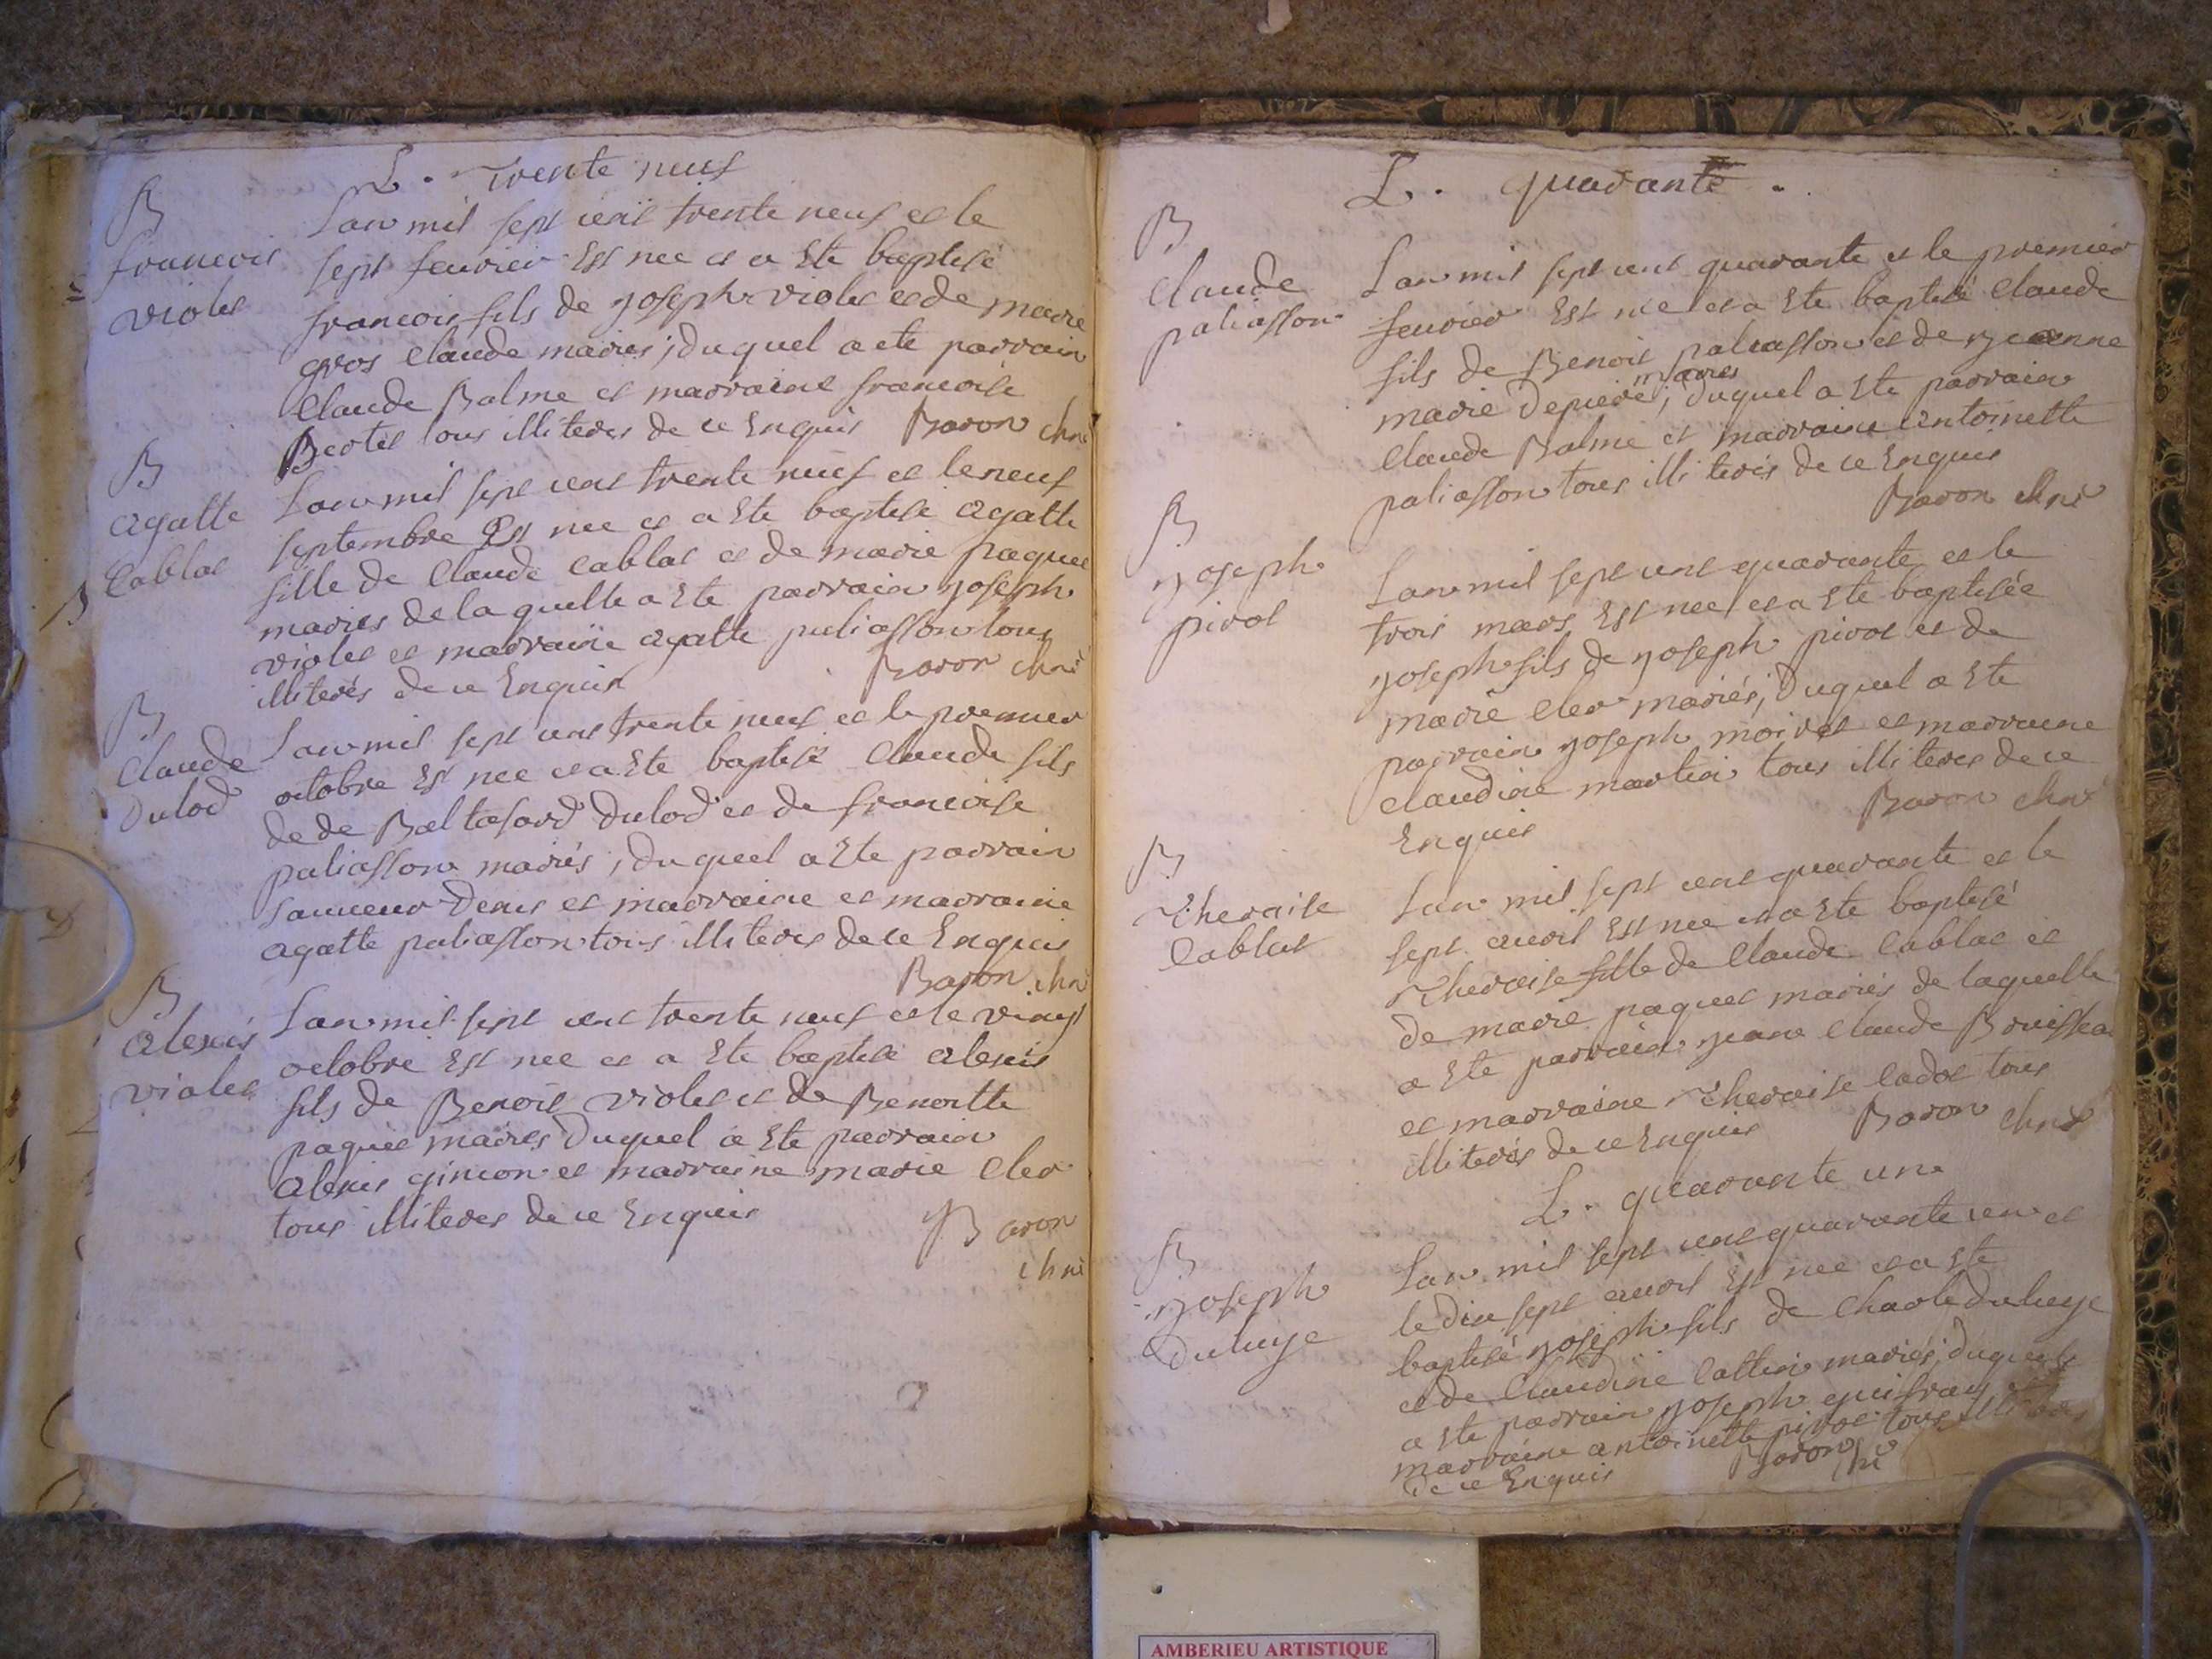 L. Trente neuf
B
francois
violet
Lan mil sept cent trente neuf et le
sept feurier Est nee et a Ete baptisé
francois fils de joseph violet et de marie
gros Claude maries; duquel a ete parrain
Claude Balme et marraine francoise
Bertet tous illiteres de ce Enquis Baron chne
B
agatte
Cablat
Lan mil sept cent trente neuf et le neuf
septembre Est nee et a Ete baptisé agatte
fille de Claude Cablat et de marie paquet
maries de la quelle a Ete parrain joseph
violet et marraine agatte paliasson tous
illiterés de ce Enquis Baron chne
B
Claude
Dulod
Lan mil sept cent trente neuf et le premier
octobre Est nee et a Ete baptisé Claude fils
de de Baltasard Dulod et de francoise
paliasson mariés; duquel a Ete parrain
Denis et marraine et marraine
agatte paliasson tous illiteres de ce Enquis
Baron chne
B
alexis
violet
Lan mil sept cent trente neuf et le vingt
octobre Est nee et a Ete baptisé alexis
fils de Benoit violet et de Benoitte
paquet maries duquel a Ete parrain
alexis ginion et marraine marie Cler
tous illiteres de ce Enquis
Baron
chne
L. quarante.
B
Claude
paliasson
Lan mil sept cent quarante et le premier
feurier Est nee et a Ete baptisé Claude
fils de Benoit paliasson et de jeanne
marie Depierre maries; duquel a Ete parrain
Claude Balme et marraine antoinette
paliasson tous illiterés de ce Enquis
Baron chne
B
joseph
pirot
Lan mil sept cent quarante et le
trois mars Est nee et a Ete baptisée
joseph fils de joseph pirot et de
marie Cler mariés; duquel a Ete
parrain joseph moiret et marraine
Claudine martin tous illiteres de ce
Enquis Baron chne
B
Theraise
Cablat
Lan mil sept cent quarante et le
sept auril Est nee et a Ete baptisé
Theraise fille de Claude Cablat et
de marie paquet mariés de laquelle
a Ete parrain jean Claude
et marraine Theraise Cadot tous
illiterés de ce Enquis Baron chne
L. quarante un
B
joseph
Duluye
Lan mil sept cent quarante un et
le dix sept auril Est nee et a Ete
baptisé joseph fils de Charle Duluye
et de Claudine Cattin mariés, duquel
a Ete parrain joseph guifray et
marraine antoinette pirot tous illiteres
de ce Enquis Baron chne
AMBERIEU ARTISTIQUE